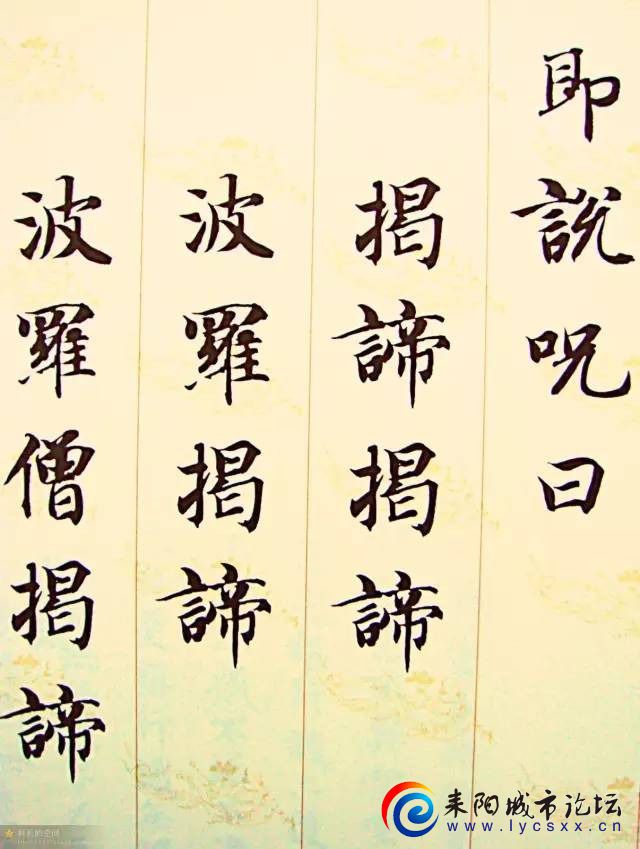 即説呪曰
揭諦揭諦
波羅揭諦
波羅僧揭諦
耒阳城市论坛
www.lycsxx.cn